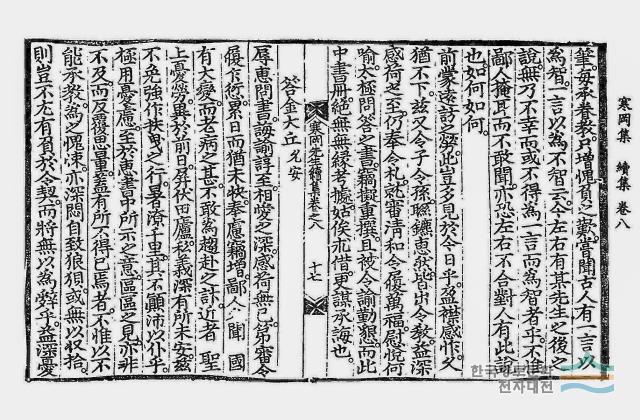 筆每承眷教只增愧負之歎嘗聞古人有一言以
為智一言以為不智云今左右有某先生之後之
說無乃不幸而或不得為一言而為智者乎不惟
鄙人掩耳而不敢聞亦恐左右不合對人有此論
也如何如何
前蒙遠訪之勞此豈多見於今日乎益襟感怍久
猶不下茲又令子令孫聯鑣惠然皆出令教益深
感荷之至仍奉令札就審清和令履萬福慰悅何
喻太極問答之書竊擬重撰且被令諭勤懇而此
中書冊絕無無緣考據姑俟亦借更謀承誨也
答金大丘 允安
辱惠問書誨諭諄至相愛之深感荷無已第審令
履乍愆累日而猶未快奉慮竊增鄙人聞國
有大變而老病之甚不敢為趨赴之計近者 聖
上憂勞異於前日屏伏田廬私義深有所未安茲
不免強作扶曳之行暑潦千里其不顛沛以仆乎
極用憂慮至於惠書中所示之意區區之見亦非
不及而反覆思量蓋有所不得已焉者不惟以不
能承教為之愧悚亦深悶自致狼狽或無以收拾
則豈不尤有負於令契而將無以為辭乎益深憂
寒岡先生續集卷之八
十七
寒岡集 續集 卷八
한국
전자대전